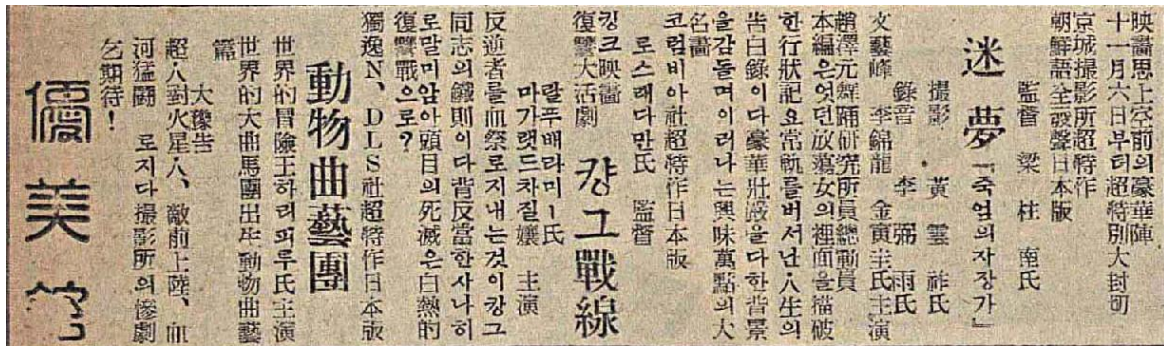 映畵思上空前의豪華陣
十一月六日부터超特別大封切
京城撮影所超特作
朝鮮語全發聲日本版
監督 梁柱南氏
迷夢「죽엄의자장가」
撮影 黃雲祚氏
錄音 李弼雨氏
文藝峰 李錦龍 金寅圭氏主演
趙澤元舞踊硏究所員總動員
本編은엇던放蕩女의裡面을描破
한行狀記요常軌를버서난人生의
告白錄이다豪華壯嚴을다한背景
을감돌며이러나는興味萬點의大
名畵
코럼비아社超特作日本版
로스래다만氏 監督
캉그戰線
킹크映畵
復讐大活劇
랄푸배라미ー氏
마가랫드차질孃 主演
反逆者를血祭로지내는것이캉그
同志의鐵則이다背反當한사나히
로말미암아頭目의死滅은白熱的
復讐戰으로?
獨逸N、DLS社超特作日本版
動物曲藝團
世界的冒險王하리피루氏主演
世界的大曲馬團出生動物曲藝
篇
大豫告
超人對火星人、敵前上陸、血
河猛鬪 로지다撮影所의慘劇
乞期待!
優美館